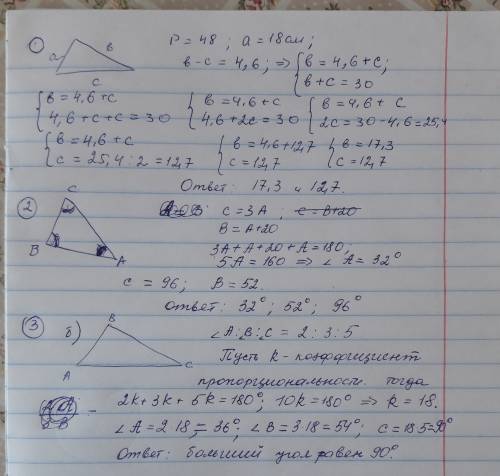 ① a в с P = 48 ; a = 18 см;
в - с = 4,6; ⇒ { в = 4,6 + с;
в + с = 30
{ в = 4,6 + с { в = 4,6 + с { в = 4,6 + с
4,6 + с + с = 30 4,6 + 2с = 30 2с = 30 - 4,6 = 25,4
{ в = 4,6 + с { в = 4,6 + 12,7 { в = 17,3
с = 25,4 : 2 = 12,7 с = 12,7 с = 12,7
Ответ: 17,3 и 12,7.
② C B A C = 3A ; C = B+20
B = A+20
3A + A + 20 + A = 180;
5A = 160 ⇒ ∠A = 32°
C = 96; B = 52.
Ответ: 32°; 52°; 96°
③ б) A B C ∠A:B:C = 2 : 3 : 5
Пусть k - коэффициент
пропорциональности. тогда
2k + 3k + 5k = 180°; 10k = 180° ⇒ k = 18.
∠A = 2·18 = 36°; ∠B = 3·18 = 54°; C = 18·5 = 90°
Ответ: больший угол равен 90°.